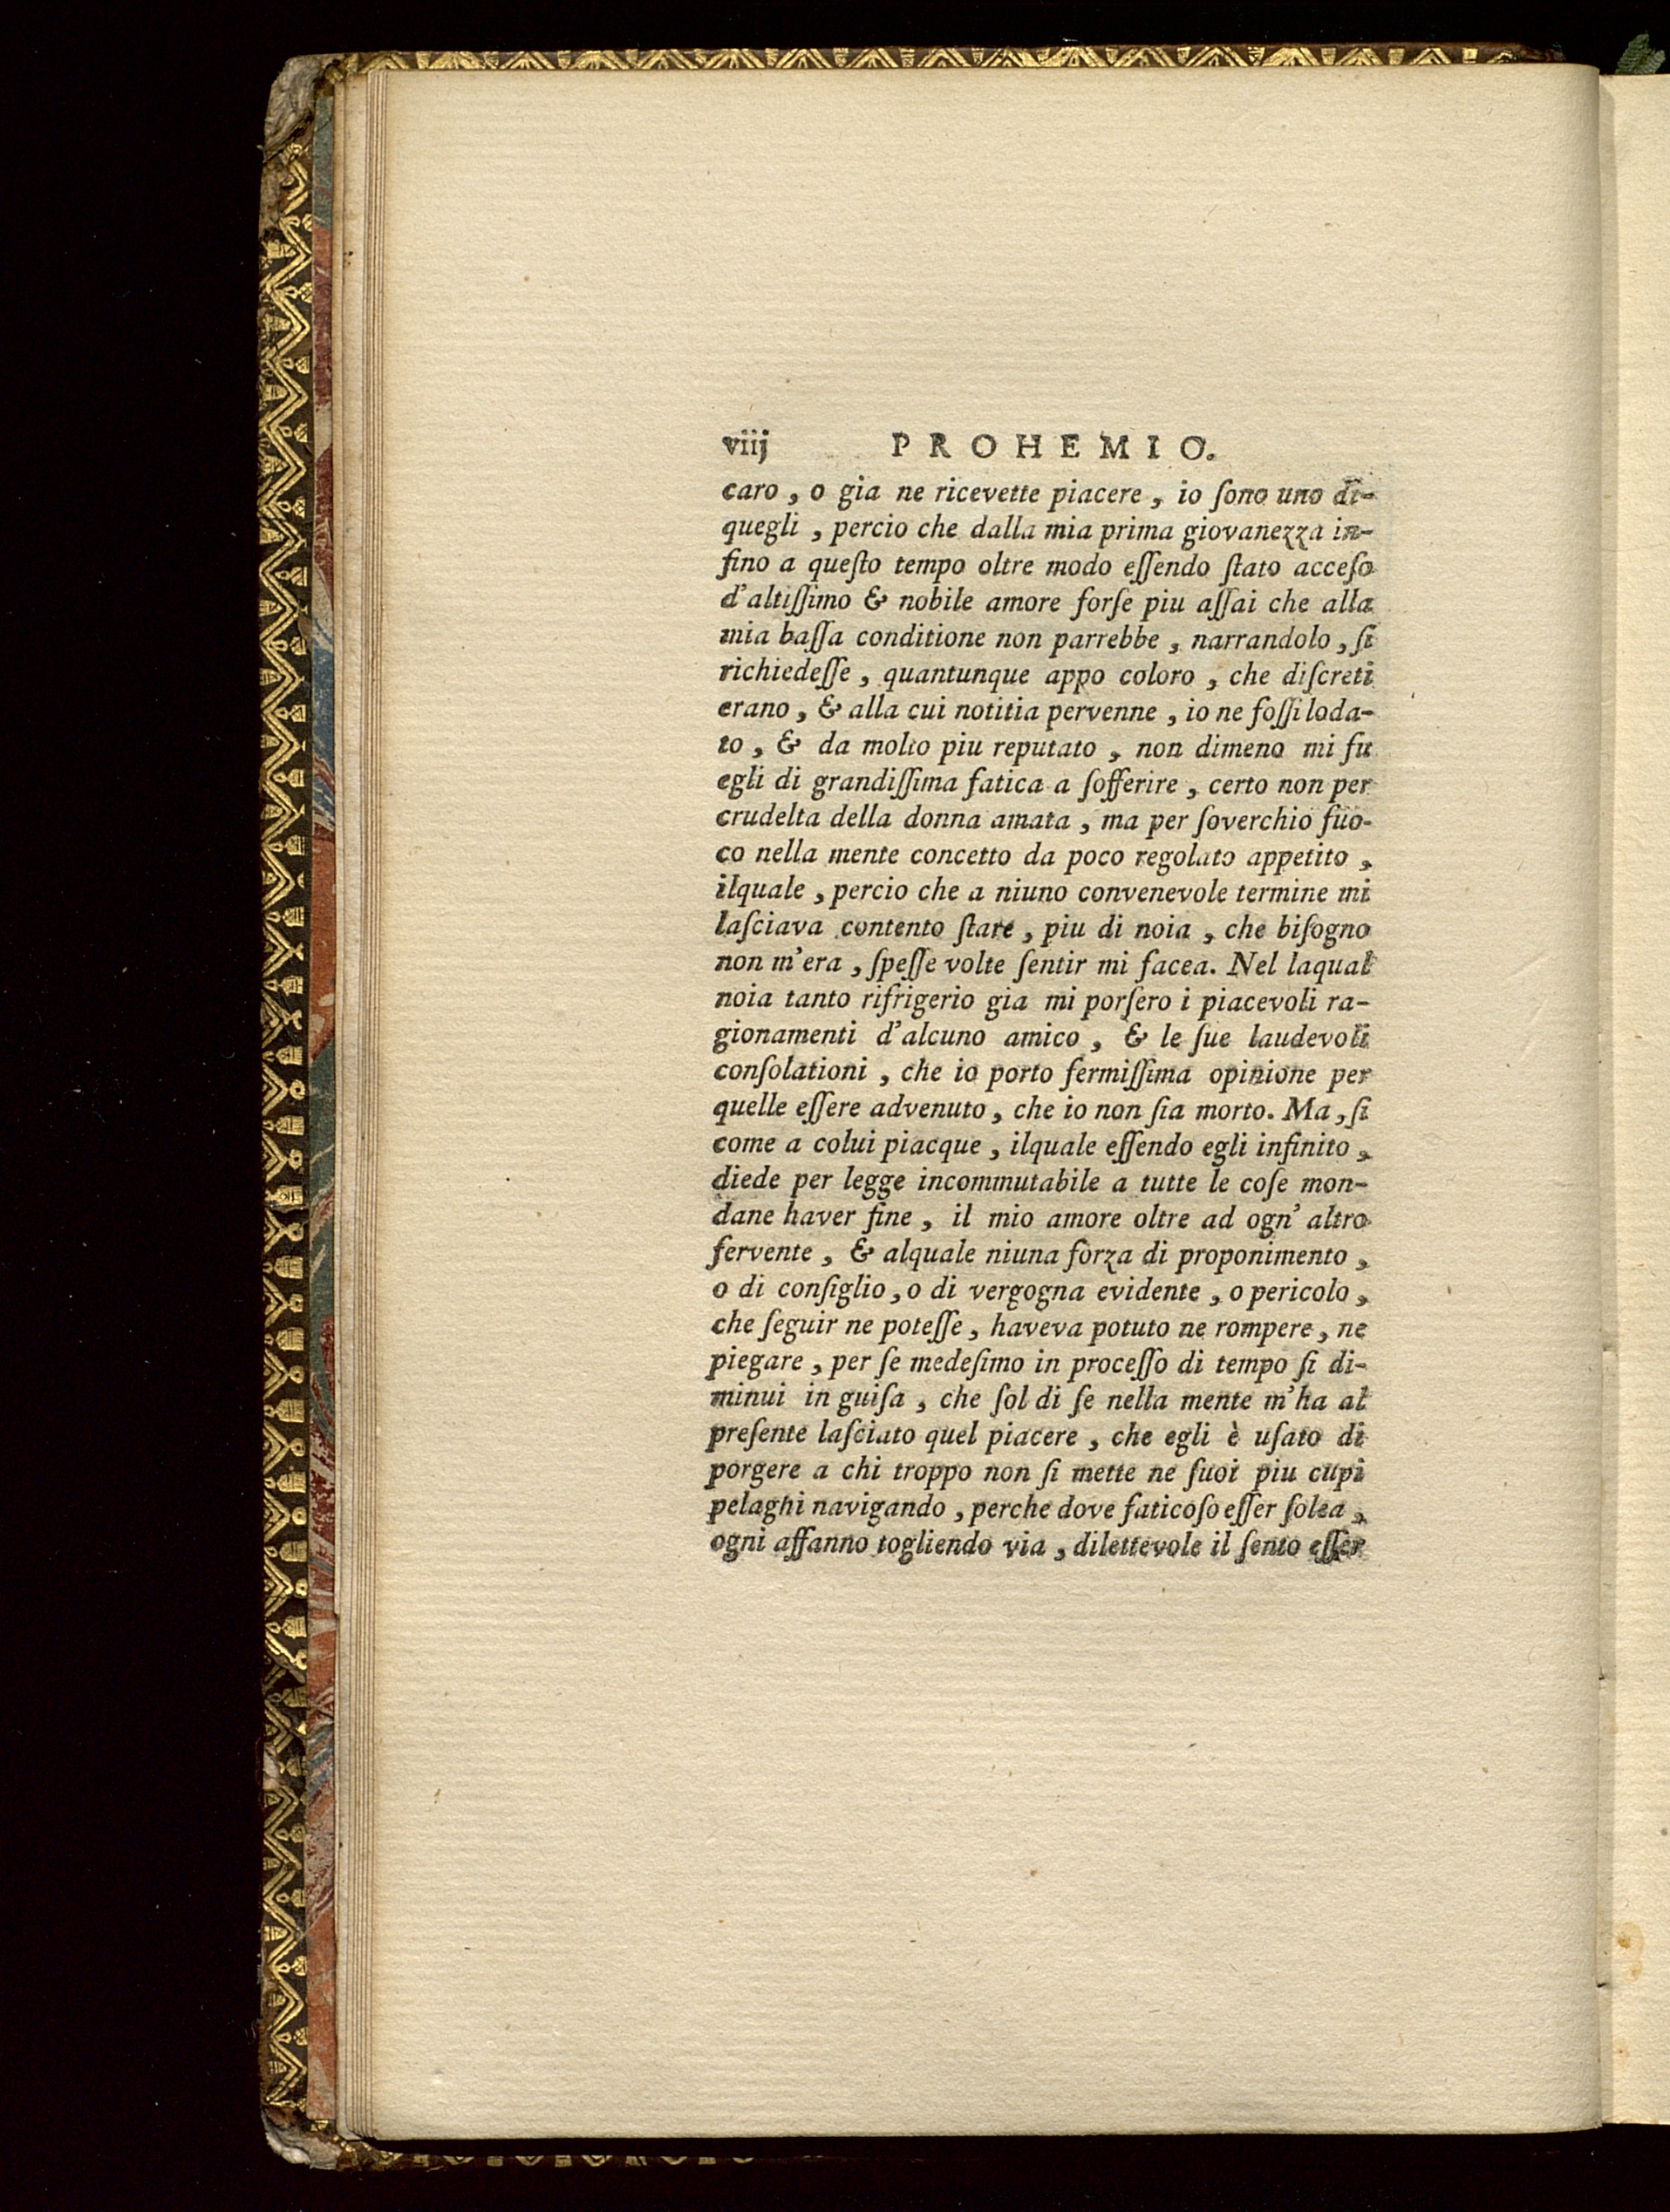 viij PROHEMIO.
caro, o gia ne ricevette piacere, io ſono uno di-
quegli, percio che dalla mia prima giovanezza in-
fino a queſto tempo oltre modo eſſendo ſtato acceſo
d'altiſſimo & nobile amore forſe piu aſſai che alla
mia baſſa conditione non parrebbe, narrandolo, ſi
richiedeſſe, quantunque appo coloro, che diſcreti
erano, & alla cui notitia pervenne, io ne foſſi loda-
to, & da molto piu reputato, non dimeno mi fu
egli di grandiſſima fatica a ſofferire, certo non per
crudelta della donna amata, ma per ſoverchio fuo-
co nella mente concetto da poco regolato appetito,
ilquale, percio che a niuno convenevole termine mi
laſciava contento ſtare, piu di noia, che biſogno
non m'era, ſpeſſe volte ſentir mi facea. Nel laqual
noia tanto rifrigerio gia mi porſero i piacevoli ra-
gionamenti d'alcuno amico, & le ſue laudevoli
conſolationi, che io porto fermiſſima opinione per
quelle eſſere advenuto, che io non ſia morto. Ma, ſi
come a colui piacque, ilquale eſſendo egli infinito,
diede per legge incommutabile a tutte le coſe mon-
dane haver fine, il mio amore oltre ad ogn' altro
fervente, & alquale niuna forza di proponimento,
o di conſiglio, o di vergogna evidente, o pericolo,
che ſeguir ne poteſſe, haveva potuto ne rompere, ne
piegare, per ſe medeſimo in proceſſo di tempo ſi di-
minui in guiſa, che ſol di ſe nella mente m'ha al
preſente laſciato quel piacere, che egli è uſato di
porgere a chi troppo non ſi mette ne ſuoi piu cupi
pelaghi navigando, perche dove faticoſo eſſer ſolea,
ogni affanno togliendo via, dilettevole il ſento eſſer